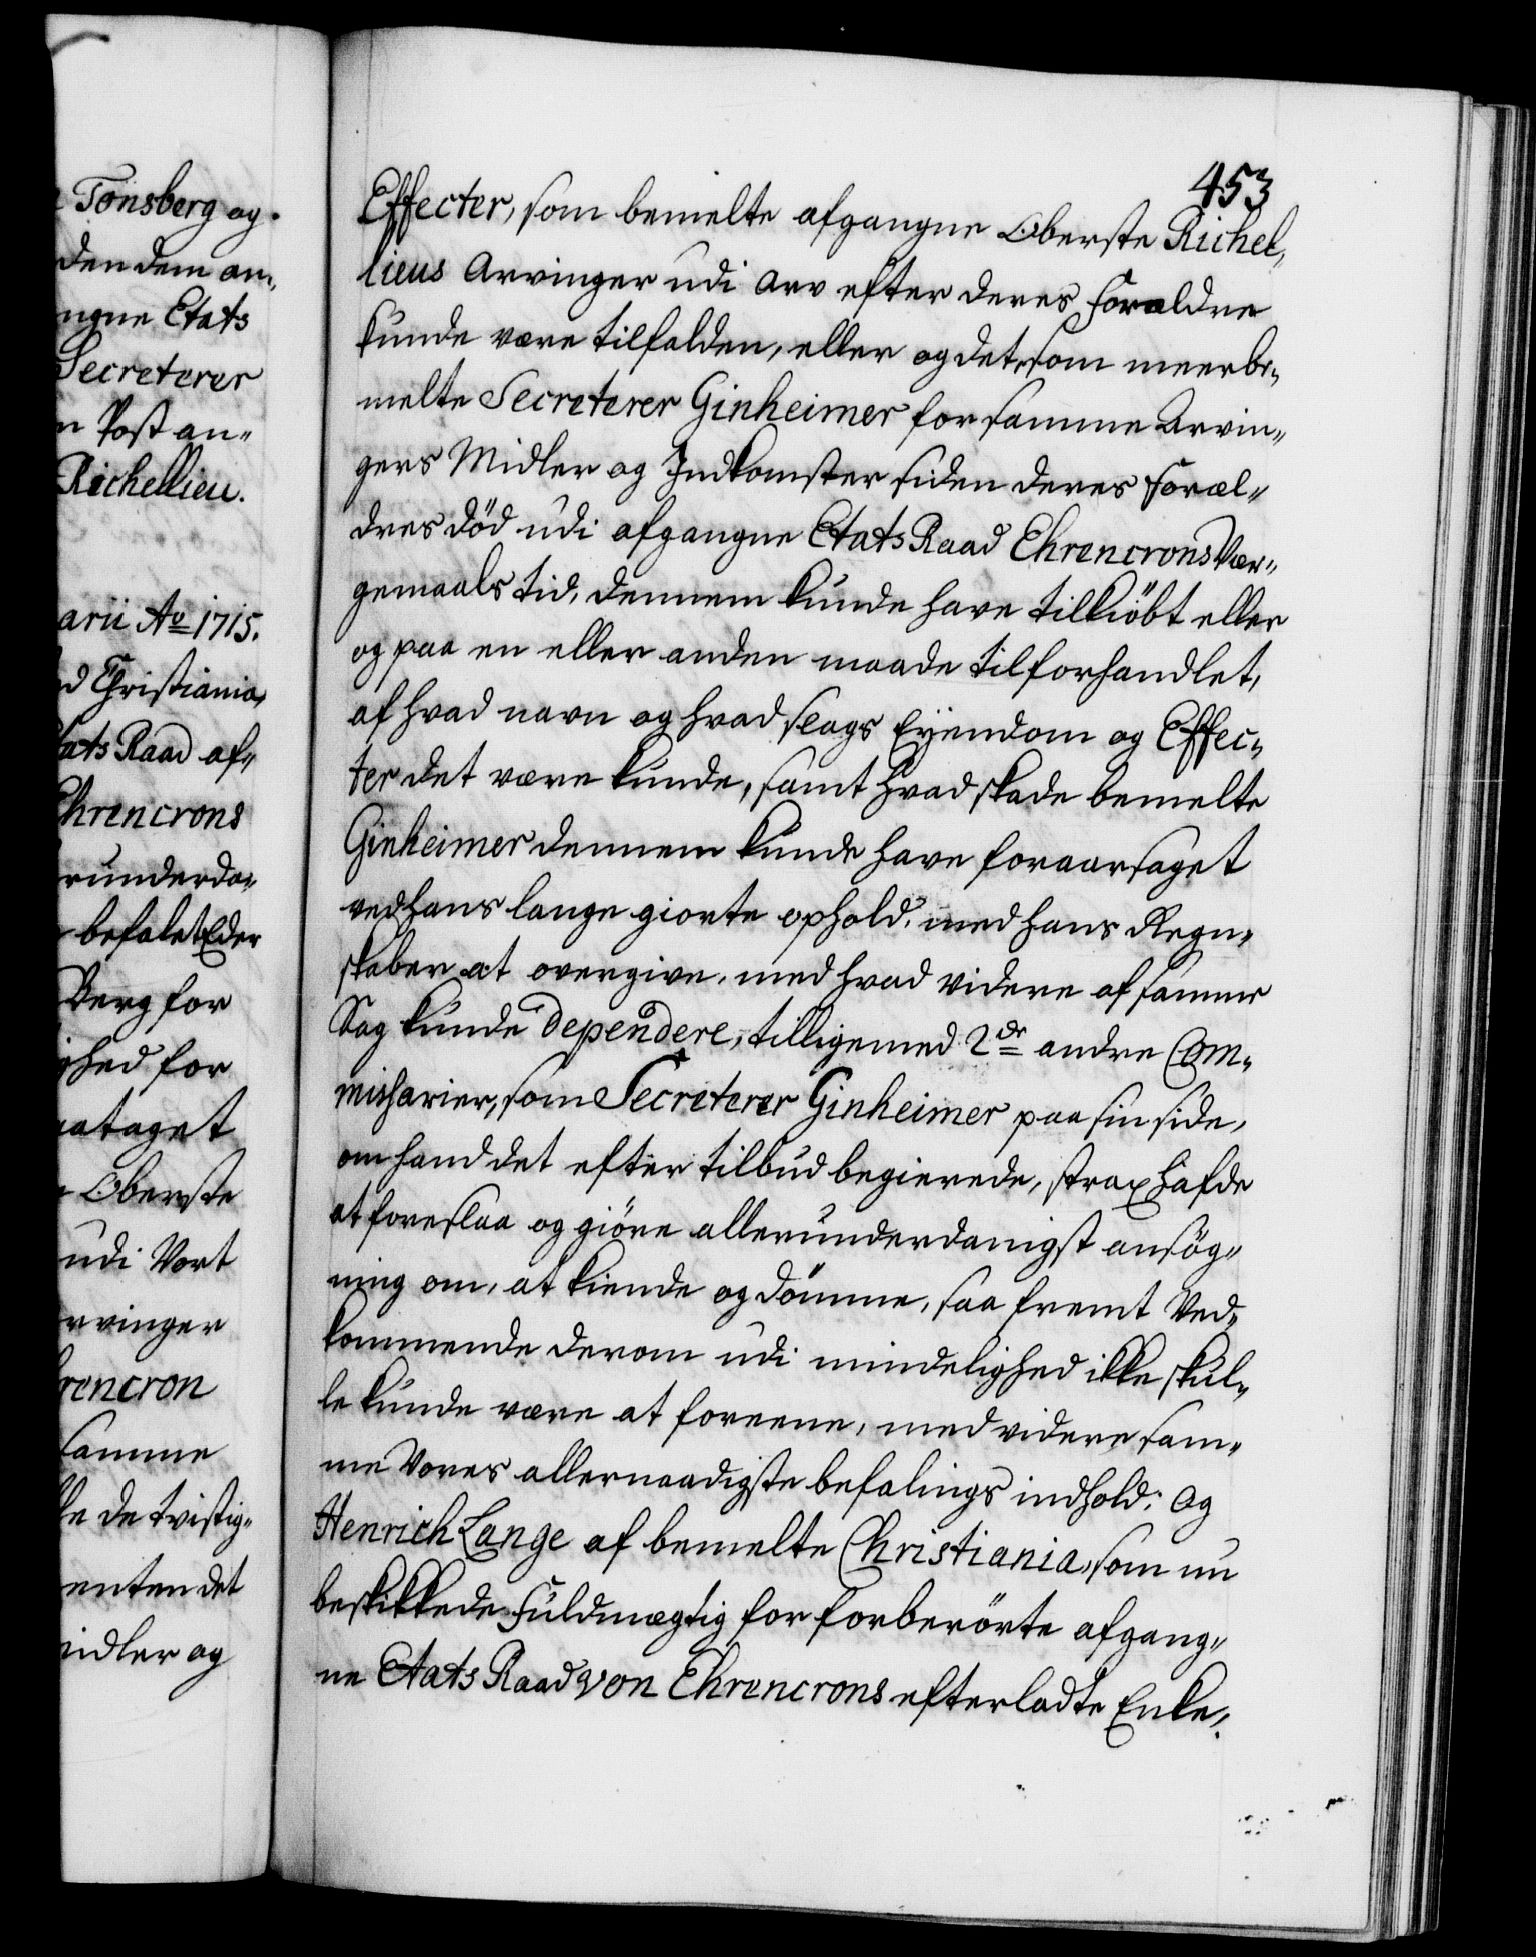 Tønsberg og
den dem an„
ngne Etats
Secreterer
n Post an„
Richellieu.
arii Ao 1715.
d Christiania,
tats Raad af„
Ehrencrons
runderda„
befalet Eder
Berg for
ighed for
ataget
Oberste
udi Vort
rvinger
rencron
samme
le de tvistig„
enten det
idler og
453
Effecter, som bemelte afgangne Oberste Richel„
lieus Arvinger udi Arv efter deres Forældre
kunde være tilfalden, eller og det, som meerbe„
melte Secreterer Ginheimer for samme Arvin„
gers Midler og Indkomster siden deres Foræl„
dres Død udi afgangne Etats Raad Ehrencrons Vær„
gemaals tid, dennem kunde have tilkiöbt eller
og paa en eller anden maade tilforhandlet,
af hvad navn og hvad slags Eyendom og Effec„
ter det være kunde, samt hvad skade bemelte
Ginheimer dennem kunde have foraarsaget
ved hans lange giorte ophold, med hans Regn„
skaber at overgive, med hvad videre af samme
Sag kunde dependere, tilligemed 2de andre Com„
missarier, som Secreterer Ginheimer paa sin side,
om hand det efter tilbud begierede, strax hafde
at foreslaa og giöre allerunderdanigst ansög„
ning om, at kiende og dömme, saa fremt Ved„
kommende derom udi mindelighed ikke skul„
le kunde være at foreene, med videre sam„
me Vores allernaadigste befalings indhold; Og
Henrich Lange af bemelte Christiania, som nu
beskikkede Fuldmægtig for forberörte afgang„
ne Etats Raad von Ehrencrons efterladte Enke,